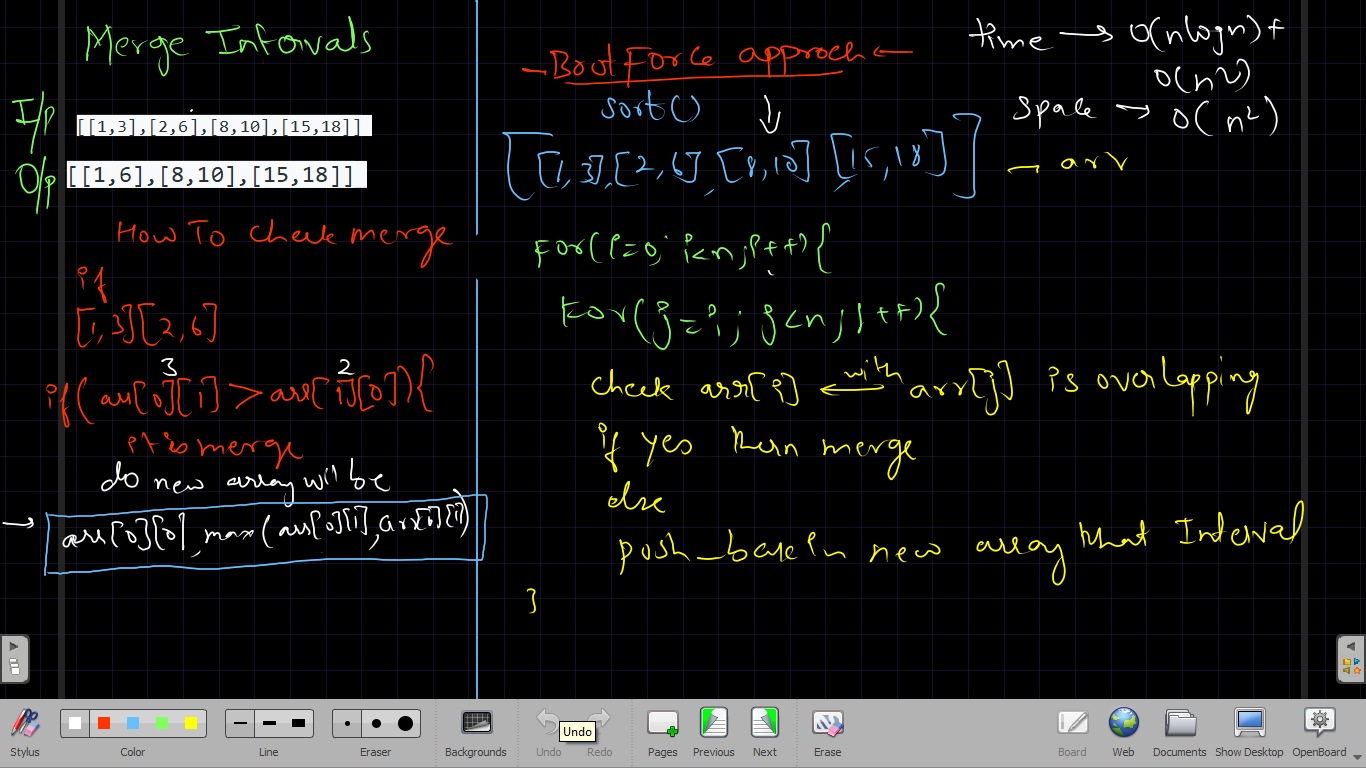 Merge Intervals
I/p
[[1,3],[2,6],[8,10],[15,18]]
O/p
[[1,6],[8,10],[15,18]]
How To check merge
if
[1,3][2,6]
3 2
if(arr[0][1] > arr[1][0]){
it is merge
do new array will be
arr[0][0], max(arr[0][1], arr[1][1])
Brut Force approch
sort()
[[1,3],[2,6],[8,10],[15,18]]
Time → O(nlogn)+
O(n2)
Space → O(n2)
arr
For(i=0; i<n; i++){
For(j=i; j<n; j++){
check arr[i] with arr[j] is overlapping
if yes then merge
else
push_back in new array that Interval
}
Stylus
Color
Line
Eraser
Backgrounds
Undo
Redo
Undo
Pages
Previous
Next
Erase
Board
Web
Documents
Show Desktop
OpenBoard